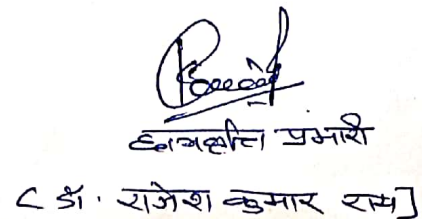 छात्रवृत्ति प्रभारी
( डॉ. राजेश कुमार राय ]